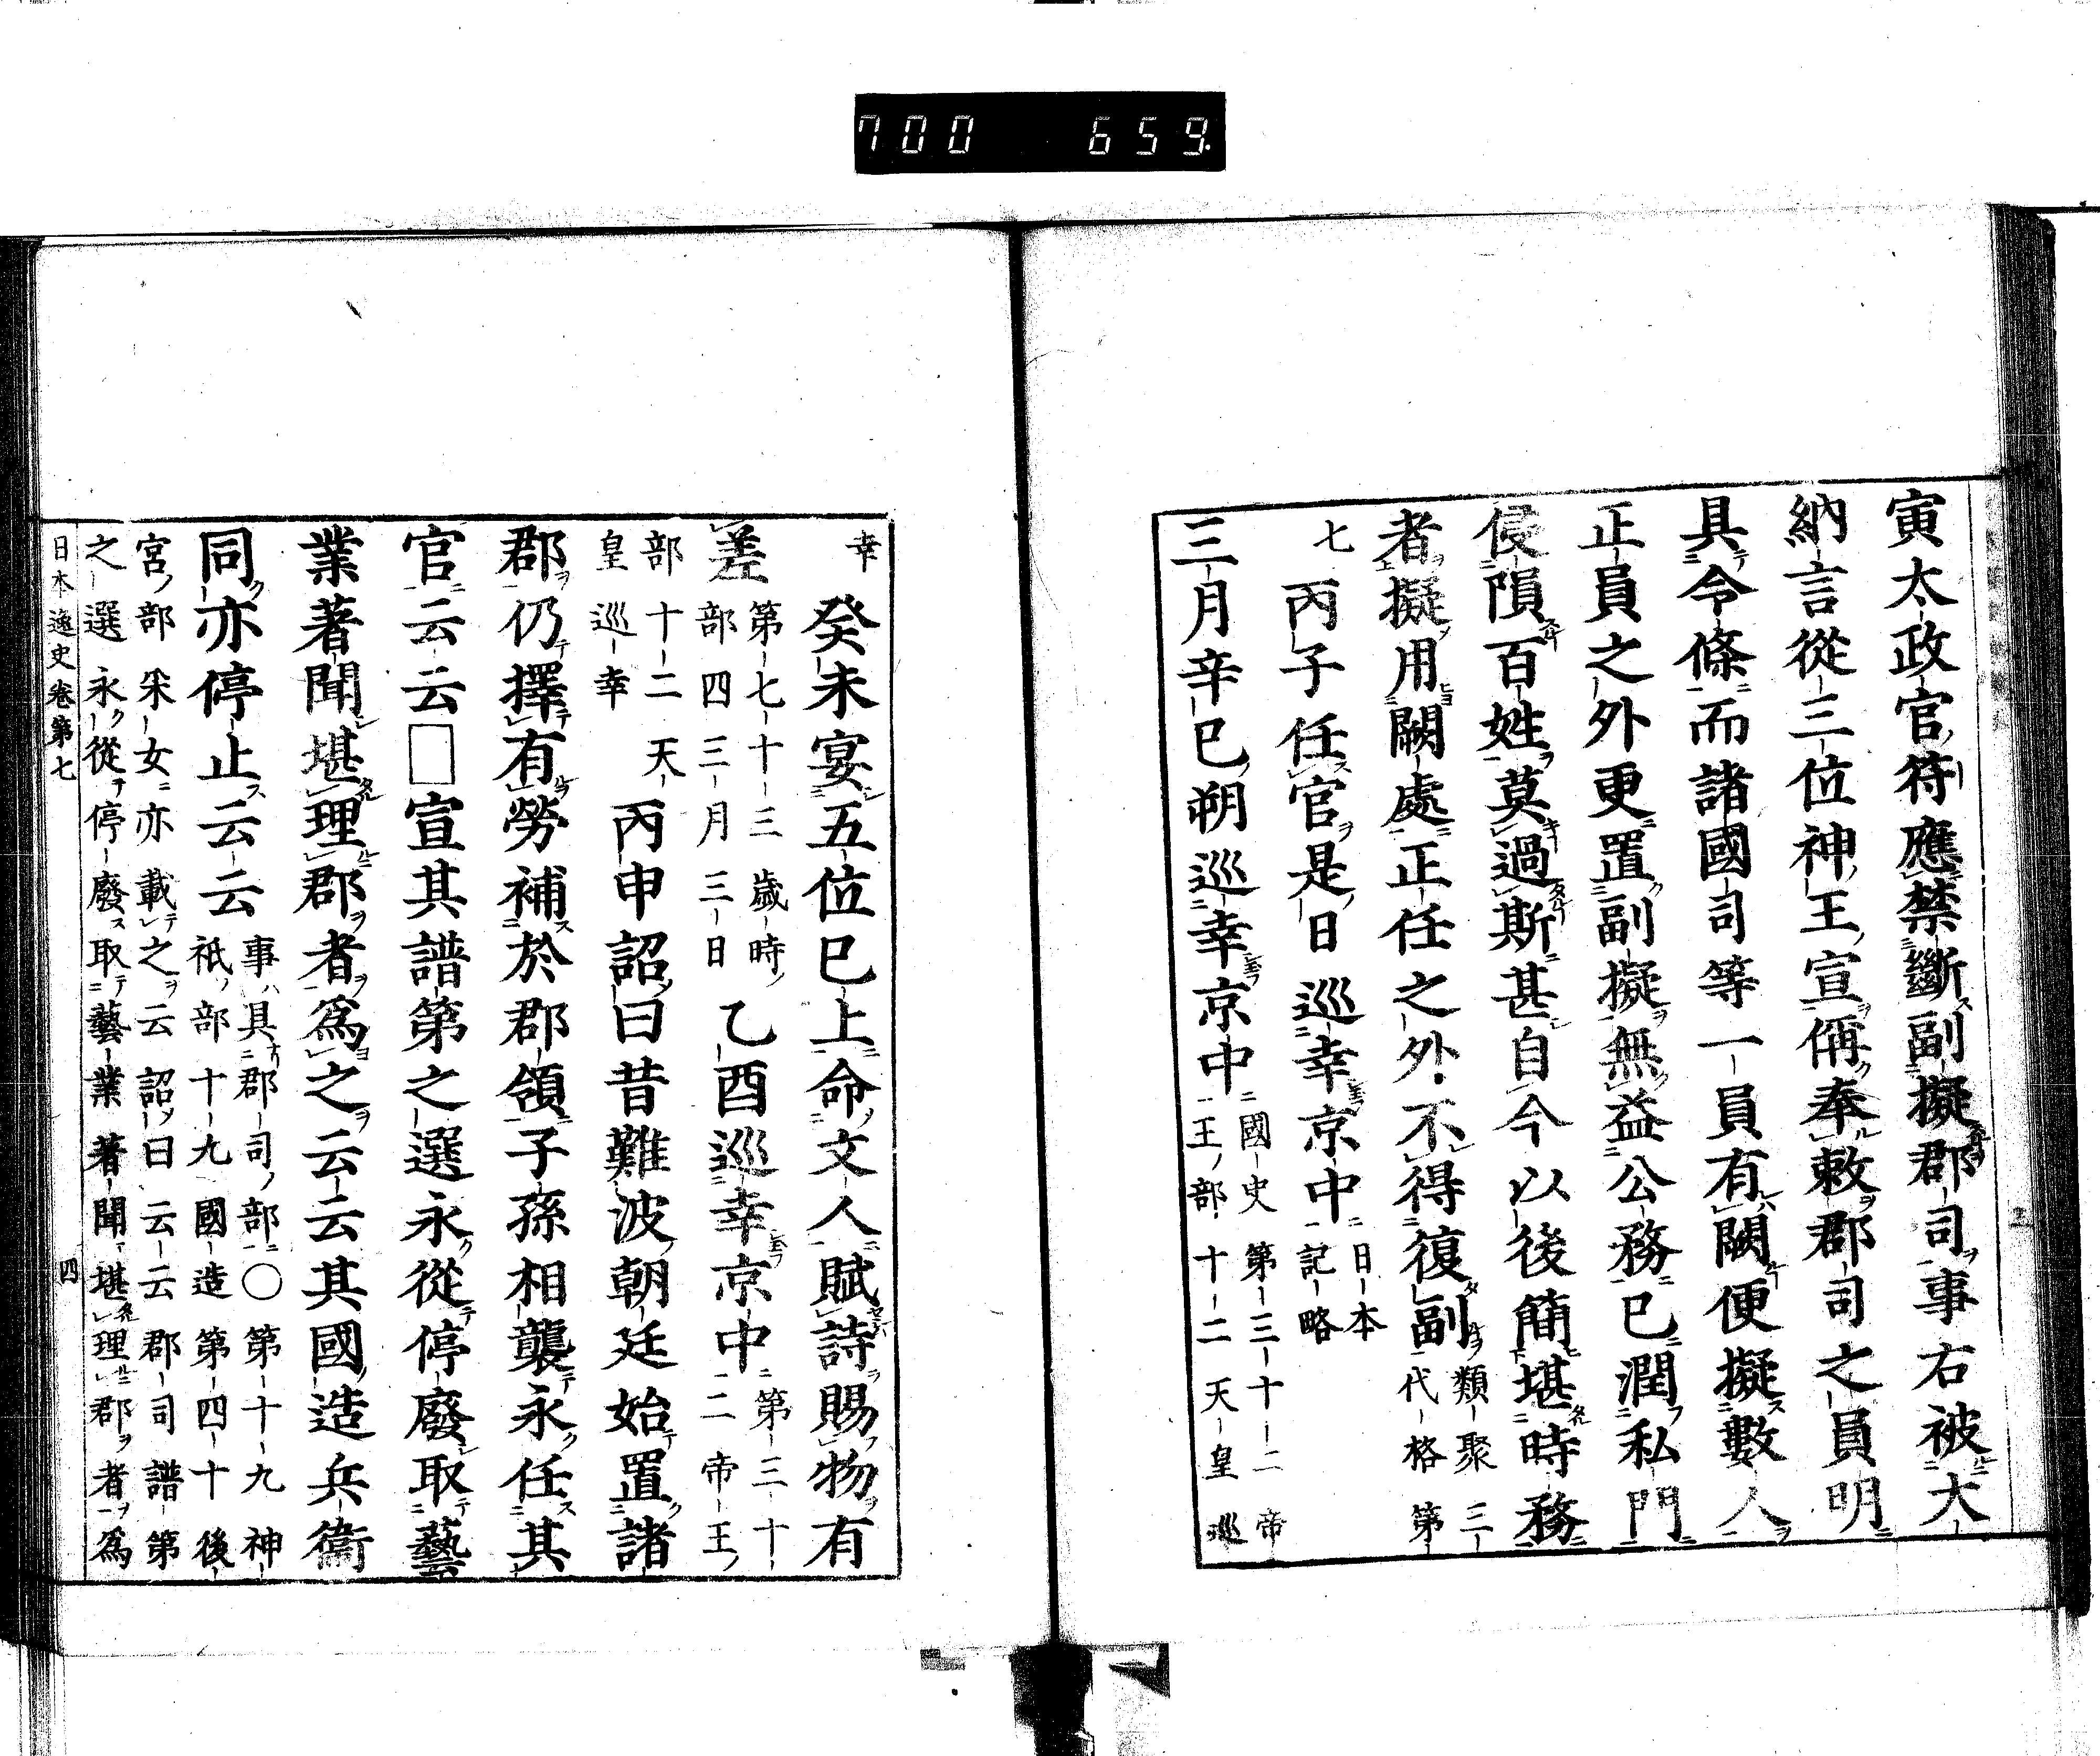 700 659
寅太政官符應禁斷副擬郡司事右被大
納言從三位神王宣偁奉敕郡司之員明
具令條而諸國司等一員有闕便擬數人
正員之外更置副擬無益公務已潤私門
侵損百姓莫過斯甚自今以後簡堪時務
者擬用闕處正任之外不得復副類聚三代格第
七 丙子任官是日巡幸京中日本記略
三月辛巳朔巡幸京中國史第三十二帝王部十二天皇巡
幸 癸未宴五位已上命文人賦詩賜物有
差第七十三歲時部四三月三日 乙酉巡幸京中第三十二帝王
部十二天皇巡幸 丙申詔曰昔難波朝廷始置諸
郡仍擇有勞補於郡領子孫相襲永任其
官云云□宣其譜第之選永從停廢取藝
業著聞堪理郡者爲之云云其國造兵衞
同亦停止云云事具郡司部○第十九神祇部十九國造第四十後
宮部釆女亦載之云詔曰云云郡司譜第
之選永從停廢取藝業著聞堪理郡者爲
日本逸史卷第七 四